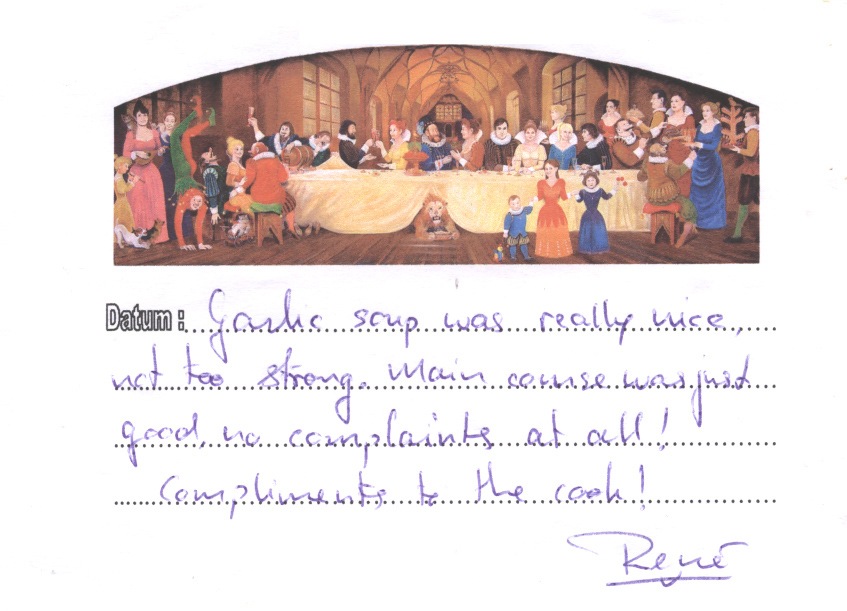 Datum: Garlic soup was really nice,
not too strong. Main course was just
good, no complaints at all!
Compliments to the cook!
René